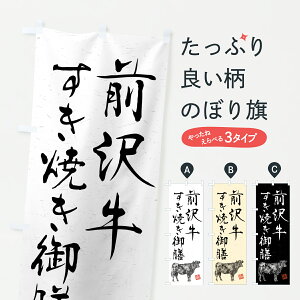 前沢牛
すき焼き御膳
たっぷり
良い柄
のぼり旗
やったね
えらべる3タイプ
A
B
C
前沢牛
すき焼き御膳
前沢牛
すき焼き御膳
前沢牛
すき焼き御膳